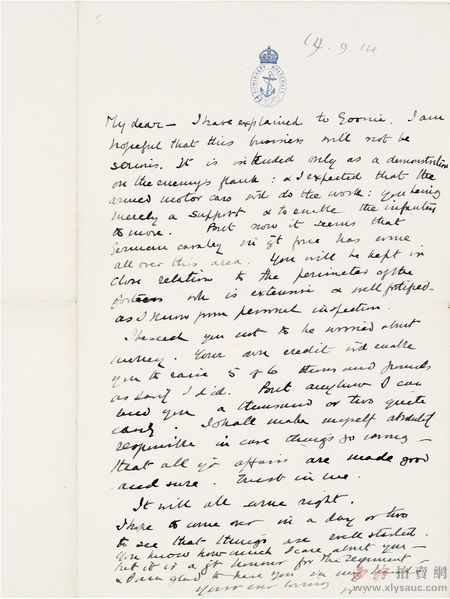 9. 14
ADMIRALTY WHITEHALL
My dear — I have explained to Goonie. I am
hopeful that this business will not be
serious. It is intended only as a demonstration
on the enemy's flank: & I expected that the
armed motor cars wd do the work: you being
merely a support & to enable the infantry
to move. But now it seems that
German cavalry in gt force has come
all over this area. You will be kept in
close relation to the perimeter of the
wh is extensive & well fortified—
as I know from personal inspection.
I beseech you not to be worried about
money. Your own credit wd enable
you to raise 5 or 6 thousand pounds
as easily I did. But anyhow I can
lend you a thousand or two quite
easily. I shall make myself absolutely
responsible in case things go wrong —
that all yr affairs are made good
and sure. Trust in me.
It will all come right.
I hope to come over in a day or two
to see that things are well started.
You know how much I care about you
but it is a gt honour for the regiment —
& I am glad to have you in my
Your ever loving
西泠拍賣网
www.xlysauc.com